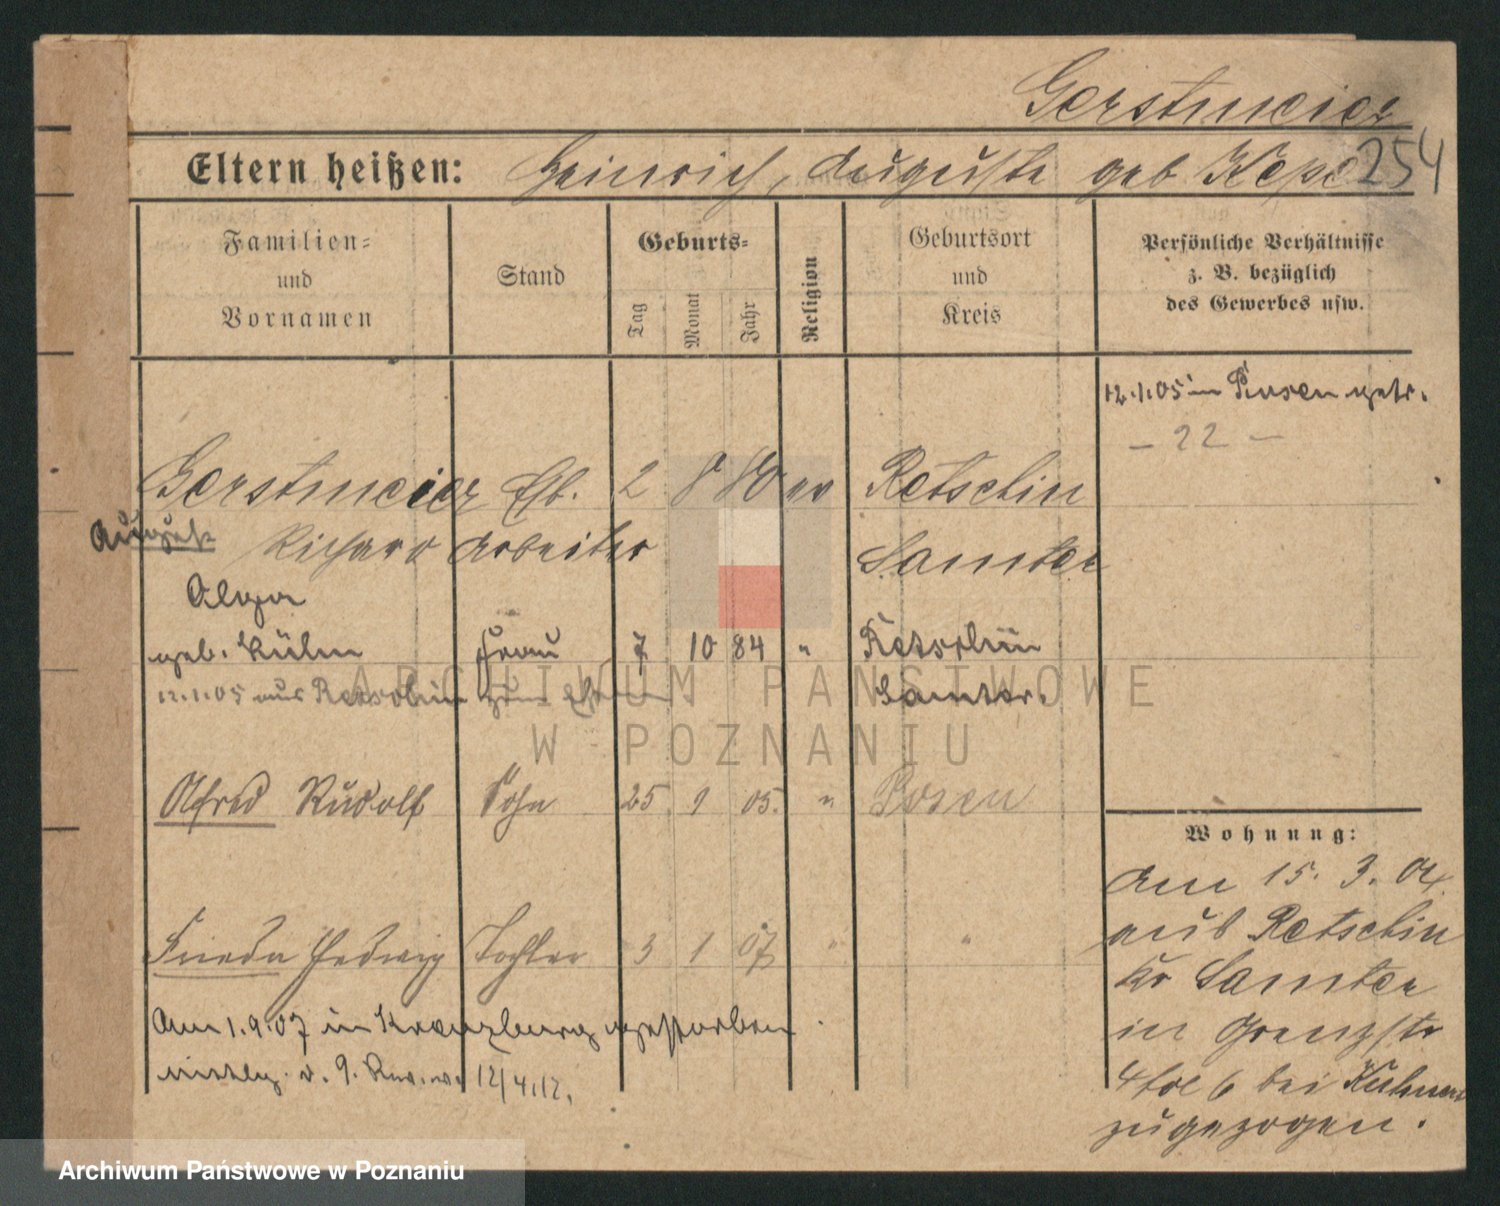 Gerstmeier
254
Eltern heißen: Heinrich, Auguste geb
Familien=
und
Vornamen
Stand
Geburts=
Tag
Monat
Jahr
Religion
Geburtsort
und
Kreis
Persönliche Verhältnisse
z. B. bezüglich
des Gewerbes usw.
12.1.05 in Posen getr.
– 22 –
Gerstmeier Eh. 2 8 80 ev Retschin
August Richard Arbeiter Samter
geb. Kühn Frau 7 10 84 " Retschin
12.1.05 aus Retschin Samter.
Alfred Rudolf Sohn 25 1 05. " Posen
Frieda Hedwig Tochter 3 1 07 " "
Am 1.9.07 in Kreuzburg gestorben.
12/4.12.
Wohnung:
Am 15. 3. 04.
aus Retschin
Kr Samter
in Grenzstr
4 bei
zugezogen.
ARCHIWUM PAŃSTWOWE
W POZNANIU
Archiwum Państwowe w Poznaniu